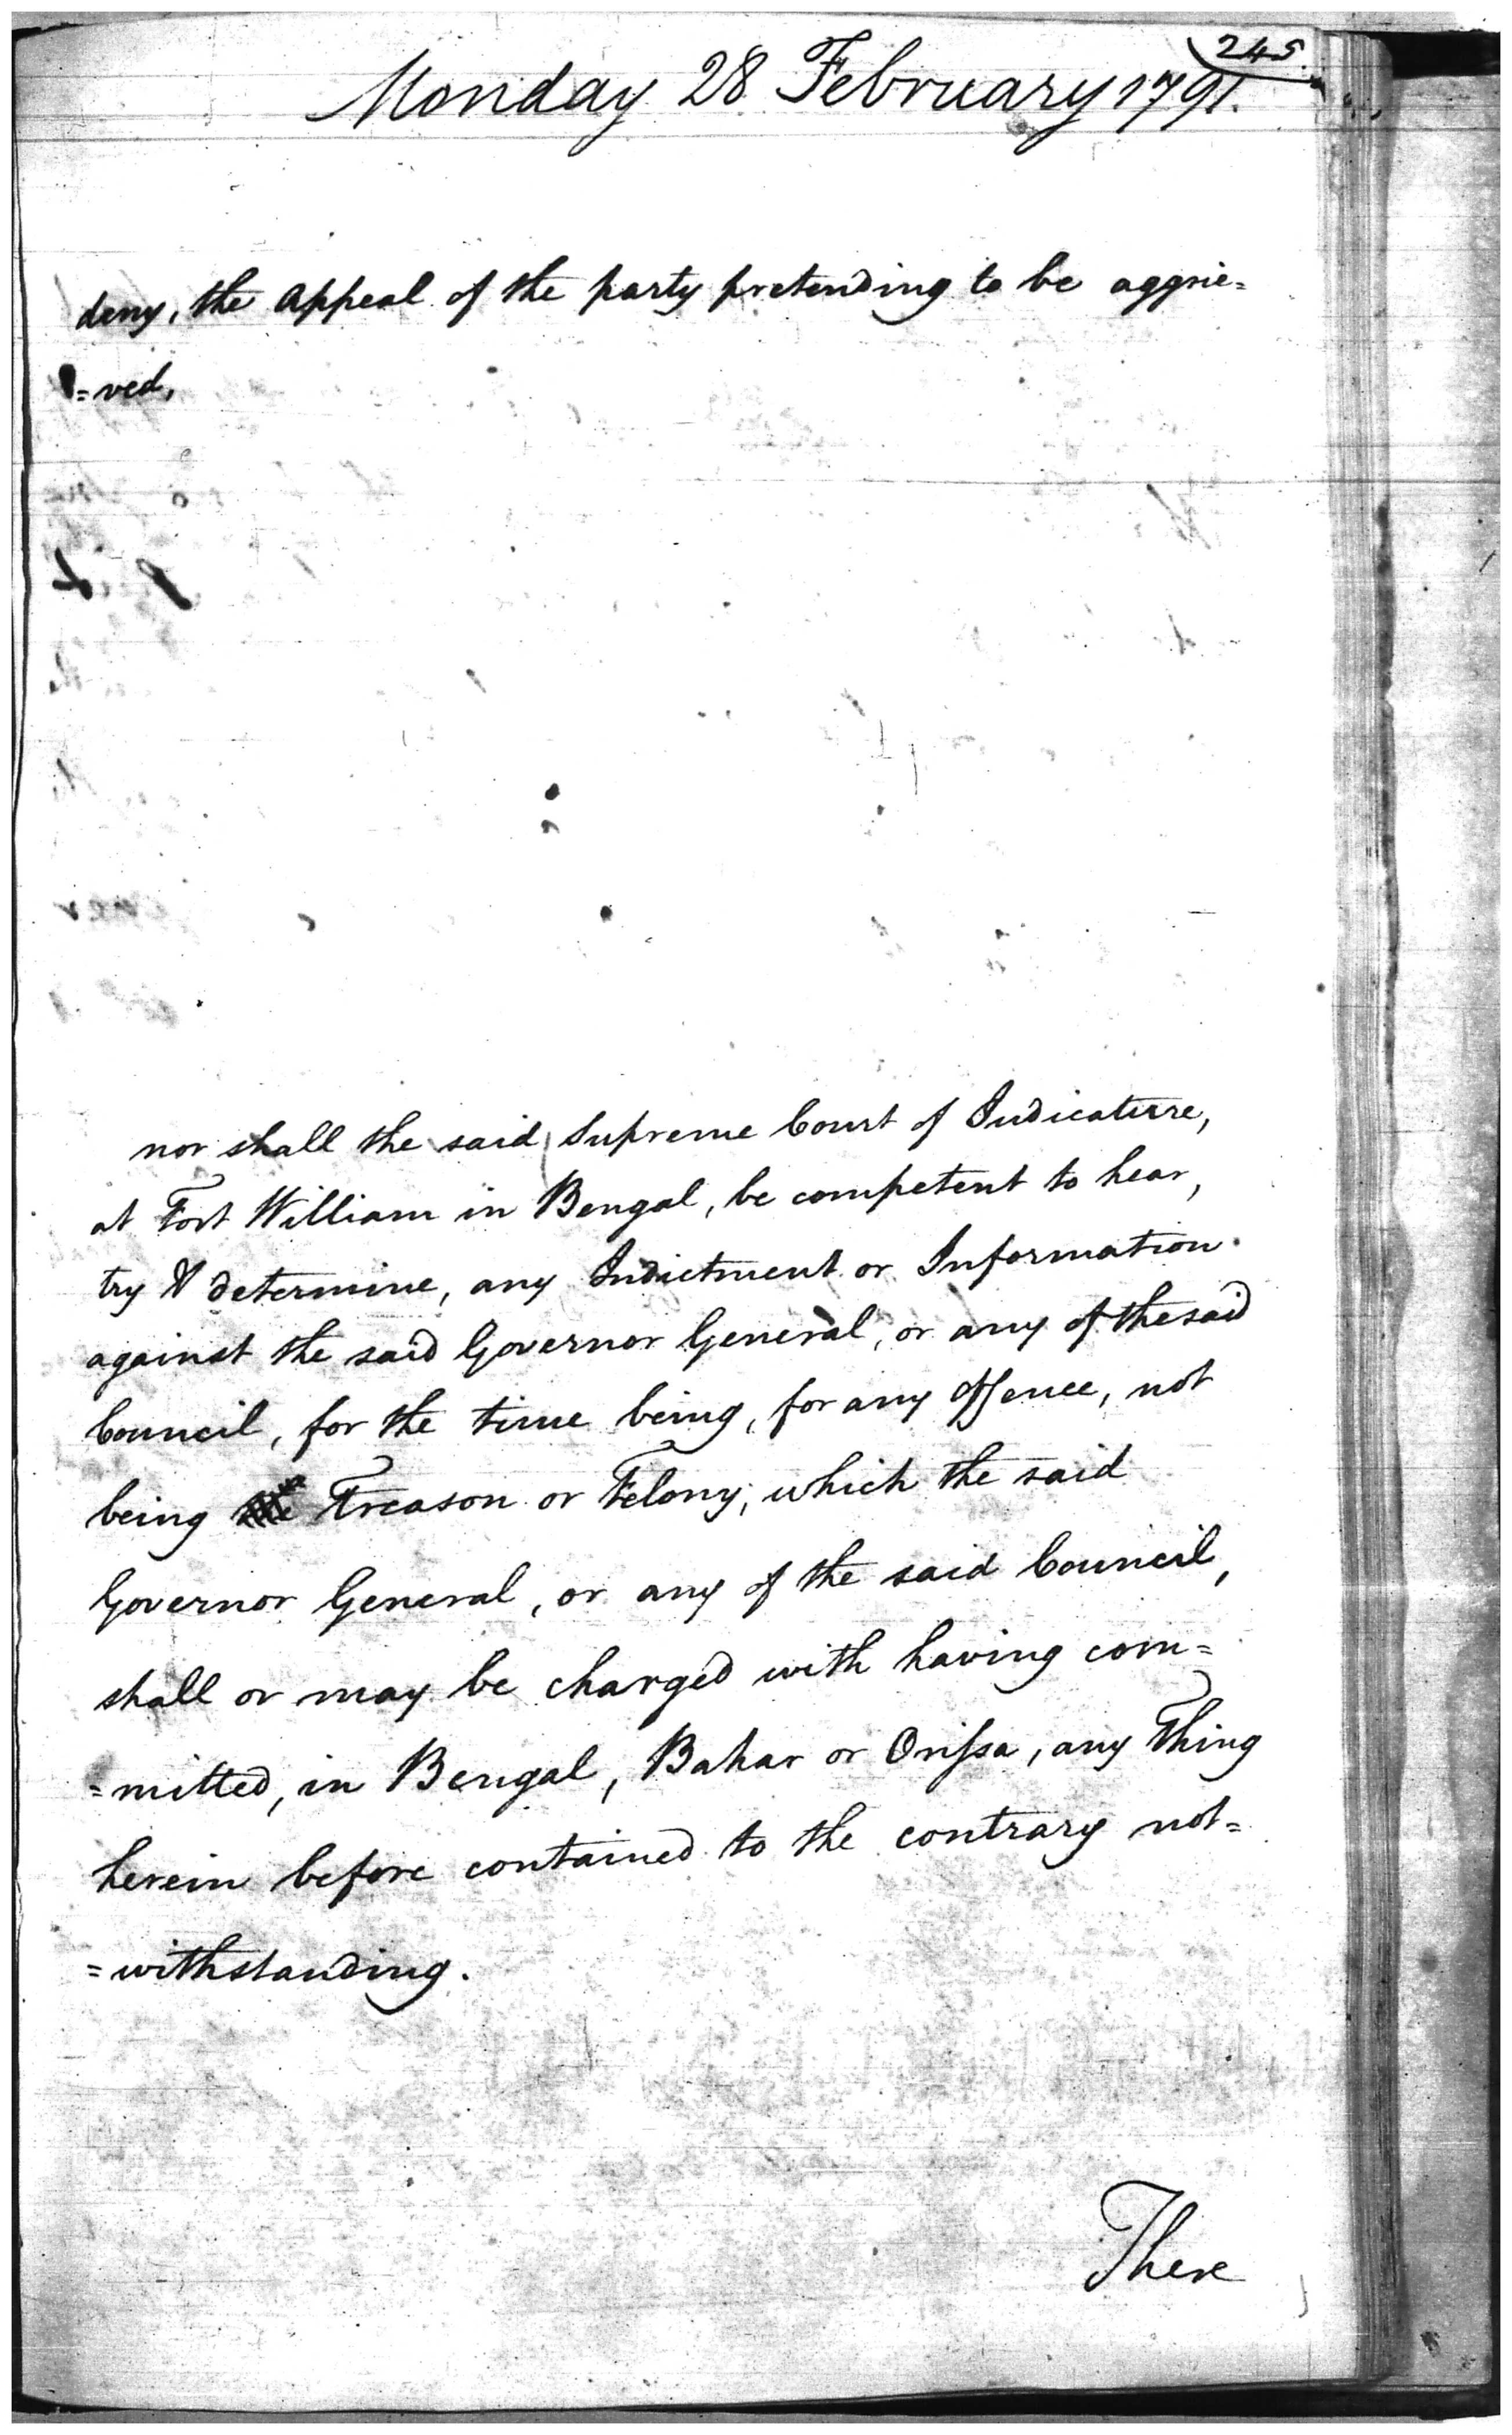 245.
Monday 28 February 1791.
deny, the appeal of the party pretending to be aggrie=
=ved,
nor shall the said Supreme Court of Judicature,
at Fort William in Bengal, be competent to hear,
try & determine, any Indictment or Information
against the said Governor General, or any of the said
Council, for the time being, for any offence, not
being Treason or Felony, which the said
Governor General, or any of the said Council,
shall or may be charged with having com=
=mitted, in Bengal, Bahar or Orissa, any Thing
herein before contained to the contrary not=
=withstanding.
There